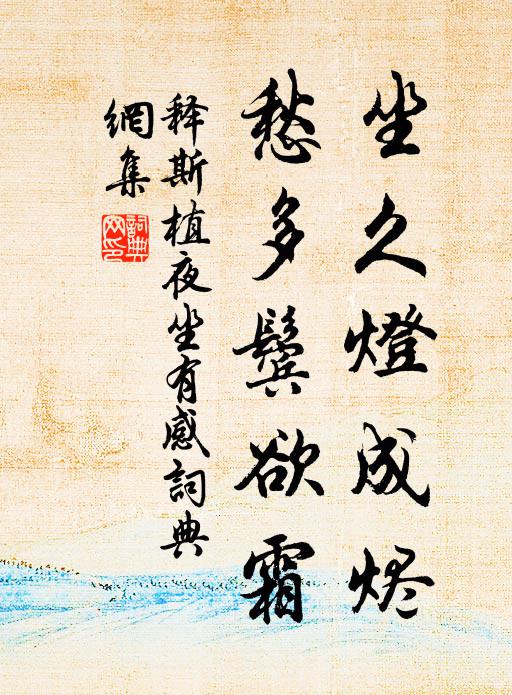 坐久燈成烬
愁多鬓欲霜
释斯植夜坐有感詞典
網集
詞典網印